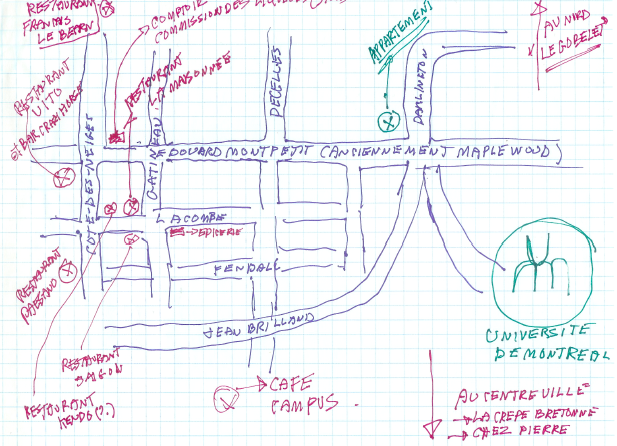 RESTAURANT
FRANÇAIS
LE BEARN
COMPTOIR
COMMISSION DES LIQUEURS
RESTAURANT
LA MAISONNEE
DECELLES
APPARTEMENT
DARLINGTON
AU NORD
LE GOBELET
RESTAURANT
VITO
ET BAR CRAZY HORSE
COTE-DES-NEIGES
GATINEAU
EDOUARD MONTPETIT (ANCIENNEMENT MAPLEWOOD)
LACOMBE
EPICERIE
RESTAURANT
PAESANO
FENDALL
JEAN BRILLAND
UNIVERSITE
DE MONTREAL
RESTAURANT
SAIGON
RESTAURANT
KENDO(?)
CAFE
CAMPUS.
AU CENTRE VILLE
LA CREPE BRETONNE
CHEZ PIERRE